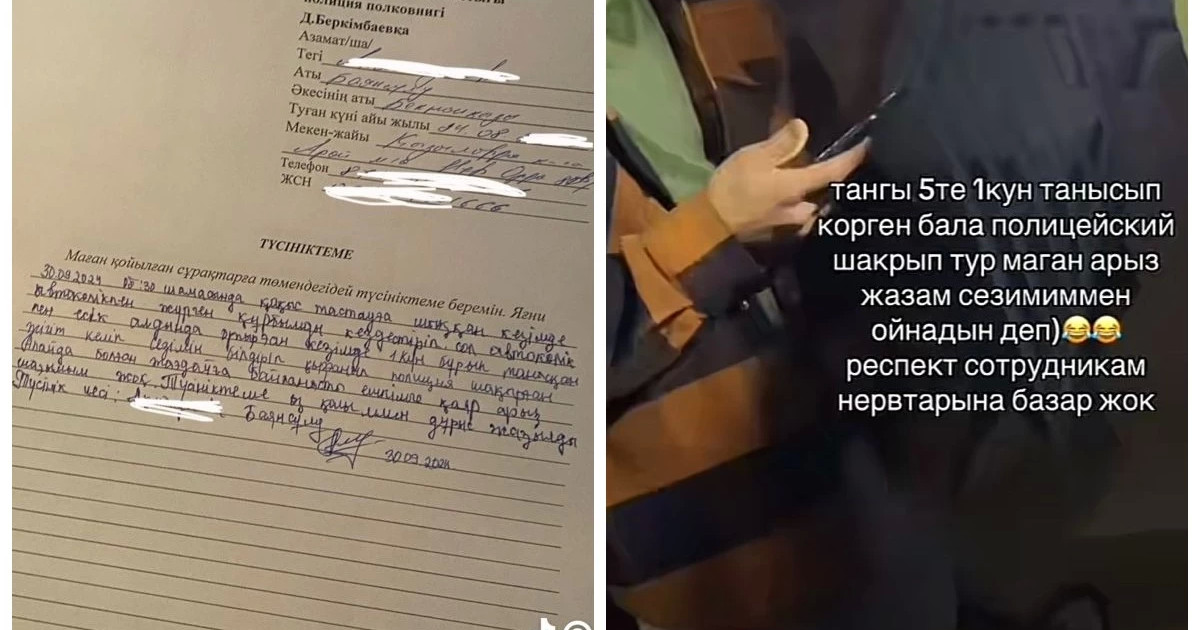 полиция полковнигі
Д.Беркімбаевқа
Азамат/ша/
Тегі
Аты Баянсұлу
Әкесінің аты
Туған күні айы жылы 24.08
Мекен-жайы Қызылорда қ-сы
Арай
Телефон 8
ЖСН 1666
ТҮСІНІКТЕМЕ
Маған қойылған сұрақтарға төмендегідей түсініктеме беремін. Яғни
30.09.2024 05:30 шамасында қоқыс тастауға шыққан кезімде
автокөлікпен жүрген құрбымды кездестіріп сол автокөлік
пен есік алдында отырған кезімде 1 күн бұрын танысқан
жігіт келіп сезімін білдіріп қызғанып полиция шақырған
Алайда болған жағдайға байланысты ешкімге қазір арыз
шағымым жоқ. Түсініктеме өз қолыммен дұрыс жазылды
Түсінік иесі: Баянсұлу
30.09.2024
тангы 5те 1кун танысып
корген бала полицейский
шакрып тур маган арыз
жазам сезимиммен
ойнадын деп)😂😂
респект сотрудникам
нервтарына базар жок